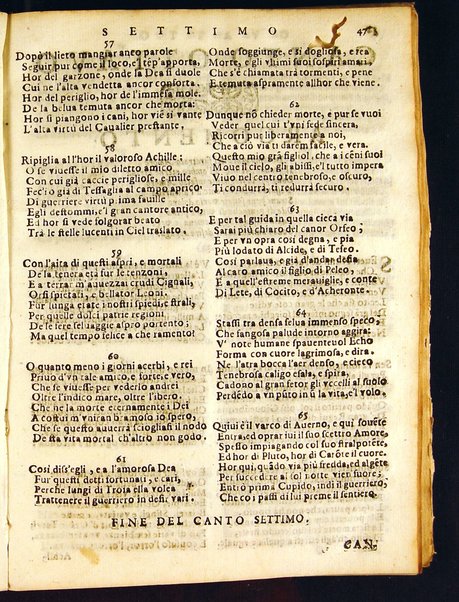 SETTIMO 47
57
Dopò il lieto mangiar anco parole
Seguir pur come il loco, e'l tēp'apporta,
Hor del garzone, onde la Dea si duole
Cui ne l'alta vendetta ancor consorta.
Hor del periglio, hor de l'immēsa mole
De la belua temuta ancor che morta:
Hor si piangono i cani, hor viē si vante
L'alta virtù del Caualier prestante.
58
Ripiglia al'hor il valoroso Achille:
O se viuesse il mio diletto amico,
Con cui già caccie perigliose, e mille
Fec'io già di Tessaglia al campo aprico
Di guerriere virtù prima fauille
Egli destommi, e'l gran cantore antico,
Ed hor si vede folgorar beato
Trà le stelle lucenti in Ciel traslato.
59
Con l'aita di questi aspri, e mortali
De la tenera età fur le tenzoni,
E a terrar m'auuezzai crudi Cignali,
Orsi spietati, e bellator Leoni.
Fur lunga etate i nostri spiedi, e strali,
Per quelle dolci patrie regioni
De le fere seluaggie aspro portento;
Ma quel tempo felice a che ramento!
60
O quanto meno i giorni acerbi, e rei
Priuo d'vn tale amico, e forte, e vero,
Che se viuesse per vederlo andrei
Oltre l'indico mare, oltre l'ibero.
Che ne la morte eternamente i Dei
A costui m'vniran bramolo io spero,
Che se questo auuerrà sciogliasi il nodo
De sta vita mortal ch'altro non godo.
61
Così diss'egli, e a l'amorosa Dea
Fur questi detti fortunati, e cari,
Perche lungi di Troia ella volea
Trattenere il guerriero in desir vari.
Onde soggiunge, e si dogliosa, e rea
Morte, e gli vltimi suoi sospiri amari
Che s'è chiamata trà tormenti, e pene
E temuta aspramente all'hor che viene.
62
Dunque nō chieder morte, e pur se vuoi
Veder quel cui t'vnì fede sincera,
Ricorri pur liberamente a noi,
Che a ciò via ti darem facile, e vera.
Questo mio grā figliol, che a i cēni suoi
Moue il cielo, gli abissi, e'l tutto impera
Viuo nel centro tenebroso, e oscuro,
Ti condurrà, ti redurrà securo.
63
E per tal guida in quella cieca via
Sarai più chiaro del canor Orfeo;
E per vn opra così degna, e pia
Più lodato di Alcide, e di Teseo.
Così parlaua, e già d'andar desia
Al caro amico il figlio di Peleo,
E a quell'estreme merauiglie, e conte
Di Lete, di Cocito, e d'Acheronte.
64
Stassi tra densa selua immenso speco,
Che fangosa palude intorno aggira:
V' note humane spauenteuol Echo
Forma con cuore lagrimosa, e dira.
Ne l'atra bocca l'aer denso, e cieco
Tenebrosa caligo esala, e spira,
Cadono al gran fetor gli vccelli al suolo
Perdēdo a vn pūto in sù la vita, e'l volo.
65
Quiui è il varco di Auerno, e qui souēte
Entra, ed oprar iui il suo scettro Amore,
Spesso impiagando col suo stral potēte,
Ed hor di Pluto, hor di Carōte il cuore.
Hor qui, quādo via più fredda, ed algēte
Per succedere al sol notte vien fuore;
Entrò prima Cupido, indi il guerriero,
Che co i passi di lui preme il sentiero.
FINE DEL CANTO SETTIMO.
CAN-